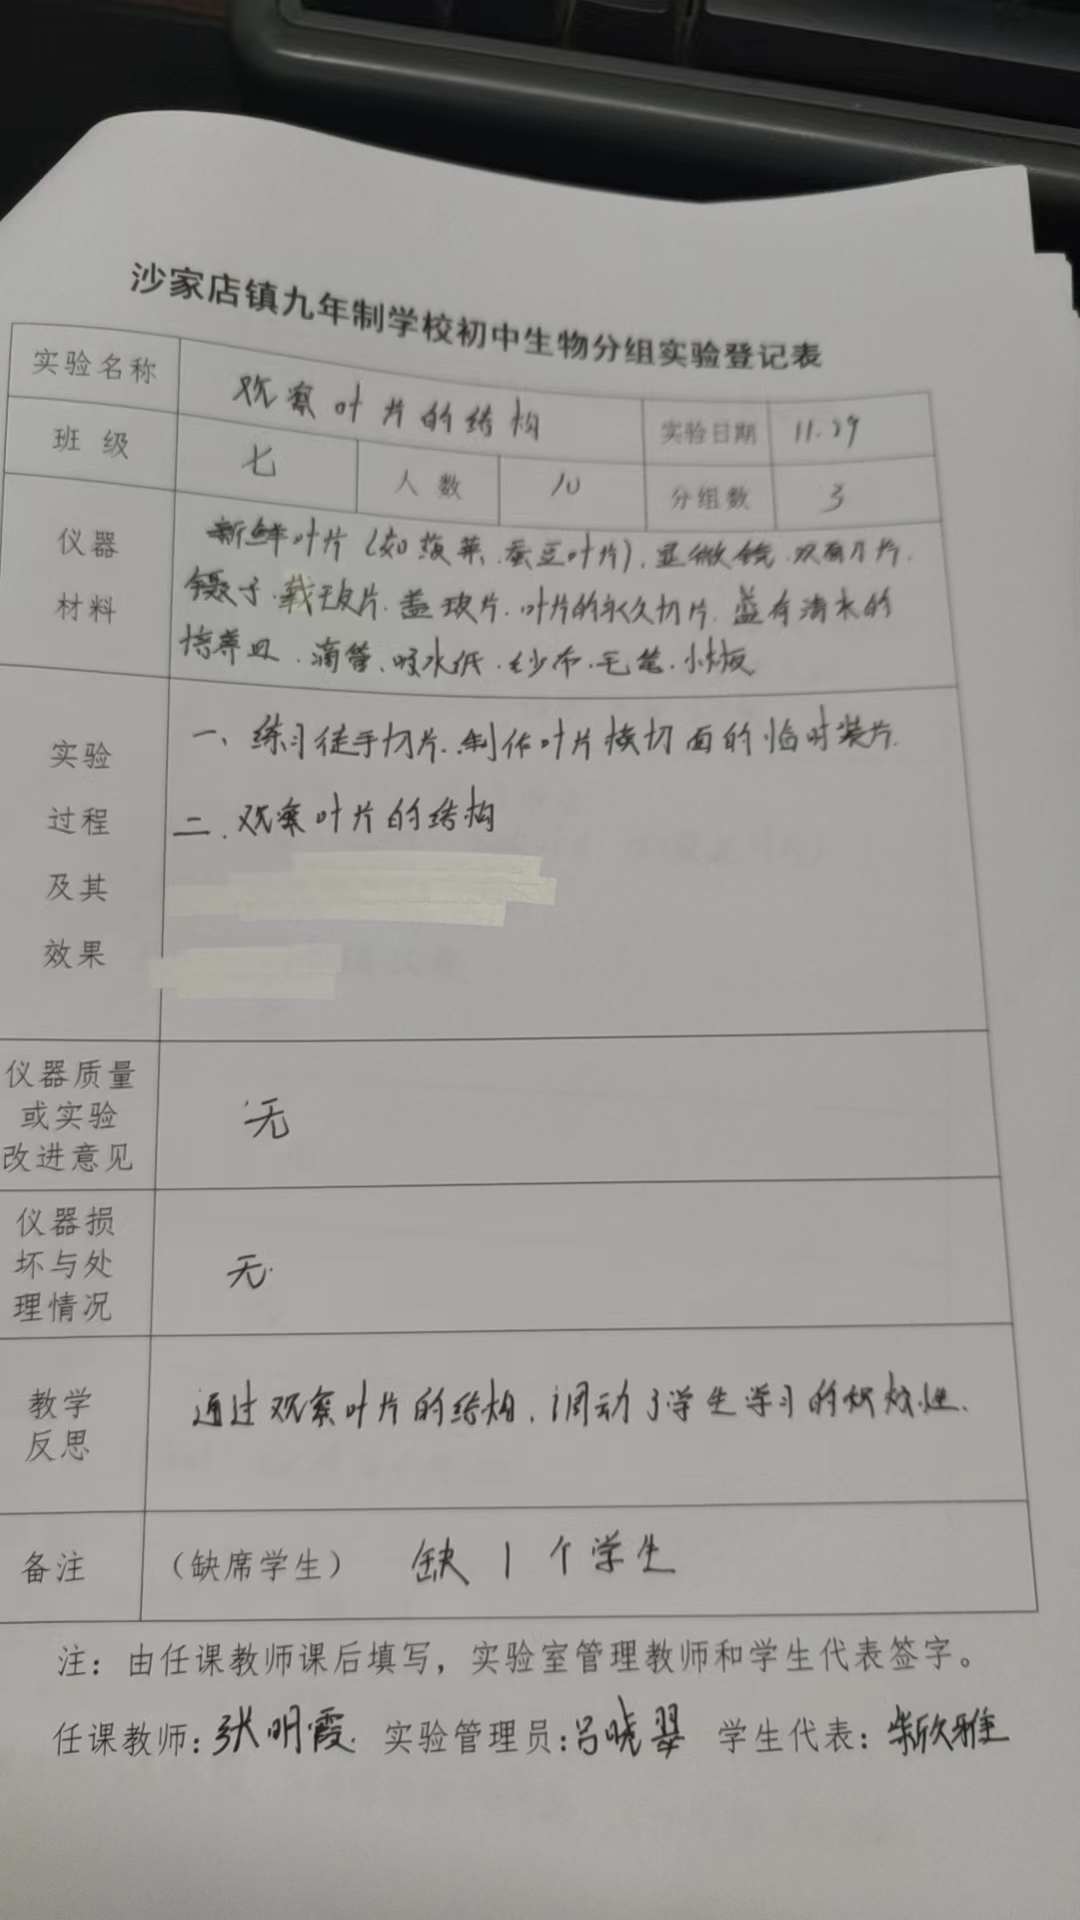 沙家店镇九年制学校初中生物分组实验登记表
实验名称 观察叶片的结构 实验日期 11.29
班 级 七 人 数 10 分组数 3
仪器
材料
新鲜叶片(如菠菜、蚕豆叶片).显微镜.双面刀片.
镊子.载玻片.盖玻片.叶片的永久切片.盛有清水的
培养皿.滴管、吸水纸.纱布.毛笔.小木板
实验
过程
及其
效果
一、练习徒手切片.制作叶片横切面的临时装片.
二.观察叶片的结构
仪器质量
或实验
改进意见
无
仪器损
坏与处
理情况
无.
教学
反思
通过观察叶片的结构.调动了学生学习的积极性.
备注 (缺席学生) 缺1个学生
注：由任课教师课后填写，实验室管理教师和学生代表签字。
任课教师:张明霞. 实验管理员:吕晓翠 学生代表：欣雅